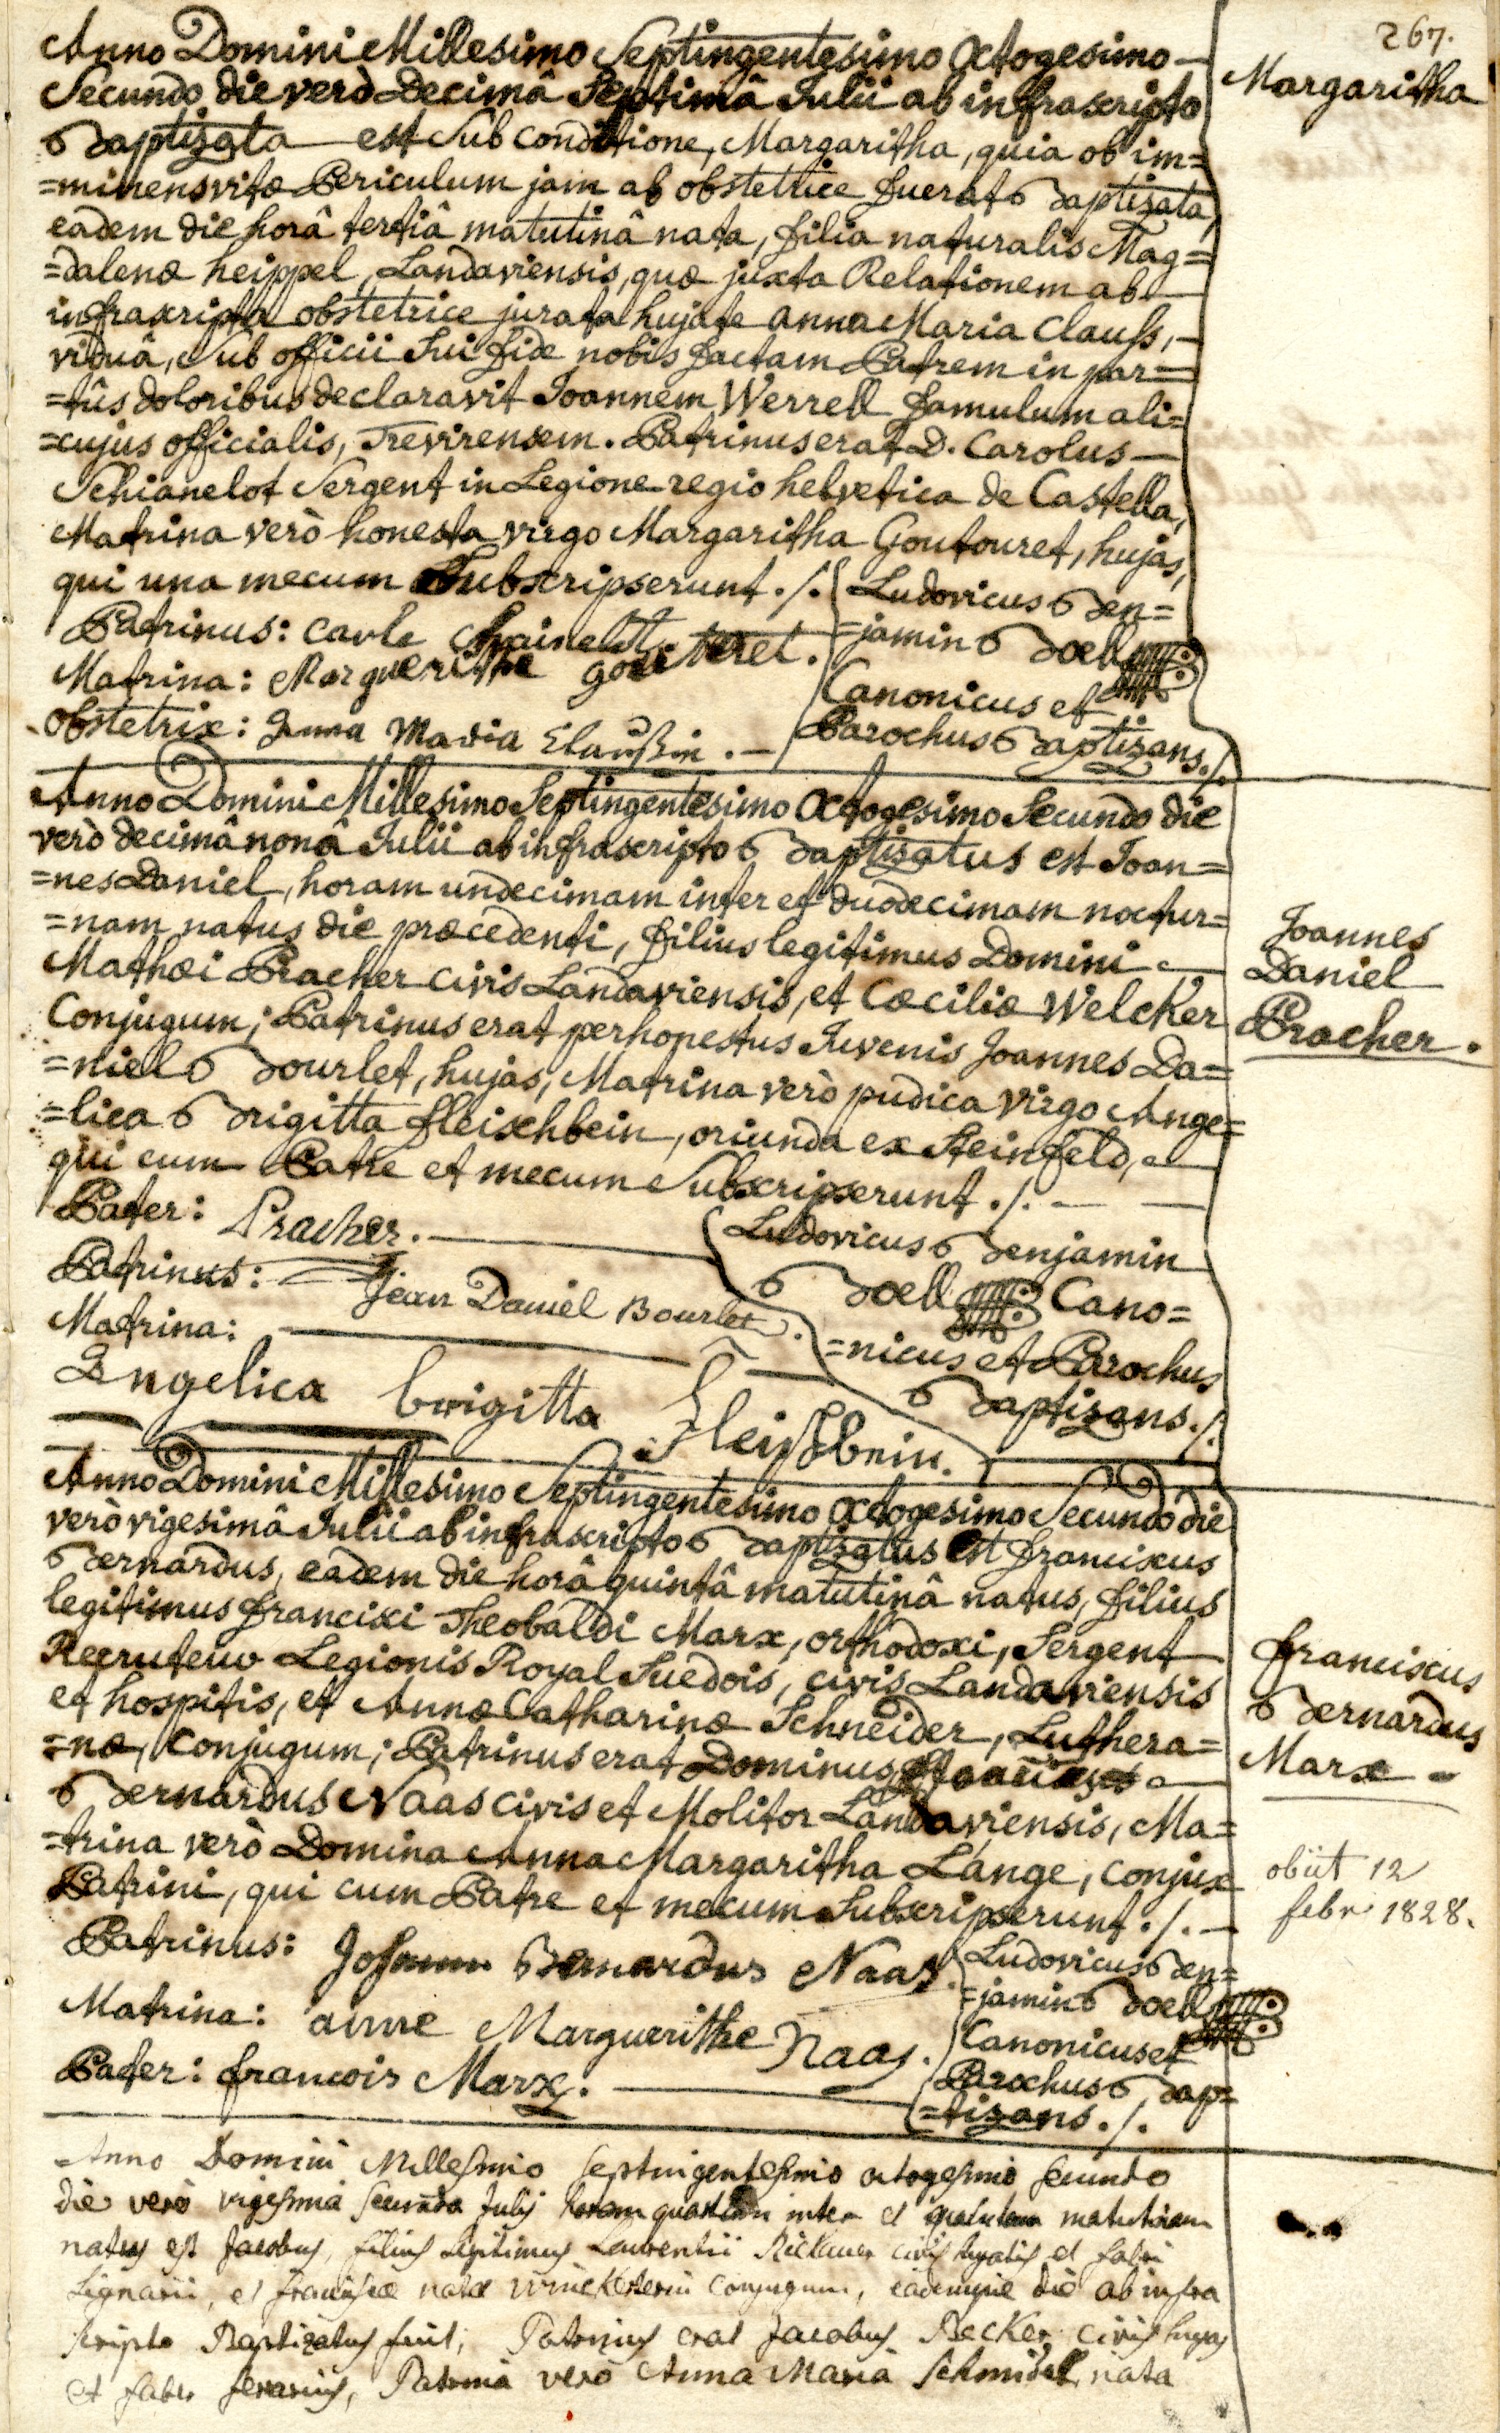 267.
Anno Domini Millesimo Septingentesimo Octogesimo
Secundo die verò Decimâ Septimâ Julii ab infrascripto
Baptizata est sub conditione, Margaritha, quia ob im=
=minens vitæ Periculum jam ab obstetrice fuerat Baptizata,
eadem die horâ tertiâ matutinâ nata, filia naturalis Mag=
=dalenæ heippel, Landaviensis, quæ juxta Relationem ab
infrascripta obstetrice jurata hujate anna Maria Clauss,
viduâ, Sub officii Sui fide nobis factam Patrem in par=
=tûs doloribus declaravit Joannem Werrell famulum ali=
=cujus officialis, Trevirensem. Patrinus erat D. Carolus
Schianelot Sergent in Legione regio helvetica de Castella,
Matrina verò honesta virgo Margaritha Goutouret, hujas,
qui una mecum Subscripserunt ./.
Patrinus: Carle
Matrina: Marguerithe
obstetrix: Anna Maria Claußin .
Ludovicus Ben=
=jamin Boell
Canonicus et
Parochus Baptizans ./.
Margaritha
Anno Domini Millesimo Septingentesimo Octogesimo Secundo die
verò decimâ nonâ Julii ab infrascripto Baptizatus est Joan=
=nes Daniel, horam undecimam inter et duodecimam noctur=
=nam natus die præcedenti, filius legitimus Domini
Mathæi Pracher Civis Landaviensis, et Cæciliæ Welcker
Conjugum; Patrinus erat perhonestus Juvenis Joannes Da=
=niel Bourlet, hujas, Matrina verò pudica virgo Ange=
=lica Brigitta fleischbein, oriunda ex Steinfeld,
qui cum Patre et mecum Subscripserunt ./.
Pater: Pracher.
Patrinus: Jean Daniel Bourlet.
Matrina:
Engelica brigitta Fleischbein.
Ludovicus Benjamin
Boell Cano=
=nicus et Parochus
Baptizans ./.
Joannes
Daniel
Pracher.
Anno Domini Millesimo Septingentesimo Octogesimo Secundo die
verò vigesimâ Julii ab infrascripto Baptizatus est franciscus
Bernardus, eadem die horâ quintâ matutinâ natus, filius
legitimus francisci Theobaldi Marx, orthodoxi, Sergent
Recruteur Legionis Royal Suedois, civis Landaviensis
et hospitis, et Annæ Catharinæ Schneider, Luthera=
=næ, Conjugum; Patrinus erat Dominus
Bernardus Naas civis et Molitor Landaviensis, Ma=
=trina verò Domina Anna Margaritha Lange, conjux
Patrini, qui cum Patre et mecum Subscripserunt ./.
Patrinus: Johann Bernardus Naas.
Matrina: anne Marguerithe Naas.
Pater: francois Marx.
Ludovicus Ben=
=jamin Boell
Canonicus et
Parochus Bap=
=tizans ./.
franciscus
Bernardus
Marx
obiit 12
febr 1828.
Anno Domini Millesimo septuigentesimo octogesimo secundo
die verò vigesima secunda Julij horam quartam inter et quintam matutinam
natus est Jacobus, filius legitimus Laurentii civis hujatis et fabri
Lignarii, et franciscæ natæ conjugum, eademque die ab infra
scripto Baptizatus fuit; Patrinus erat Jacobus Becker civis hujas
et faber ferrarius, Patrina verò Anna Maria Schmidell nata